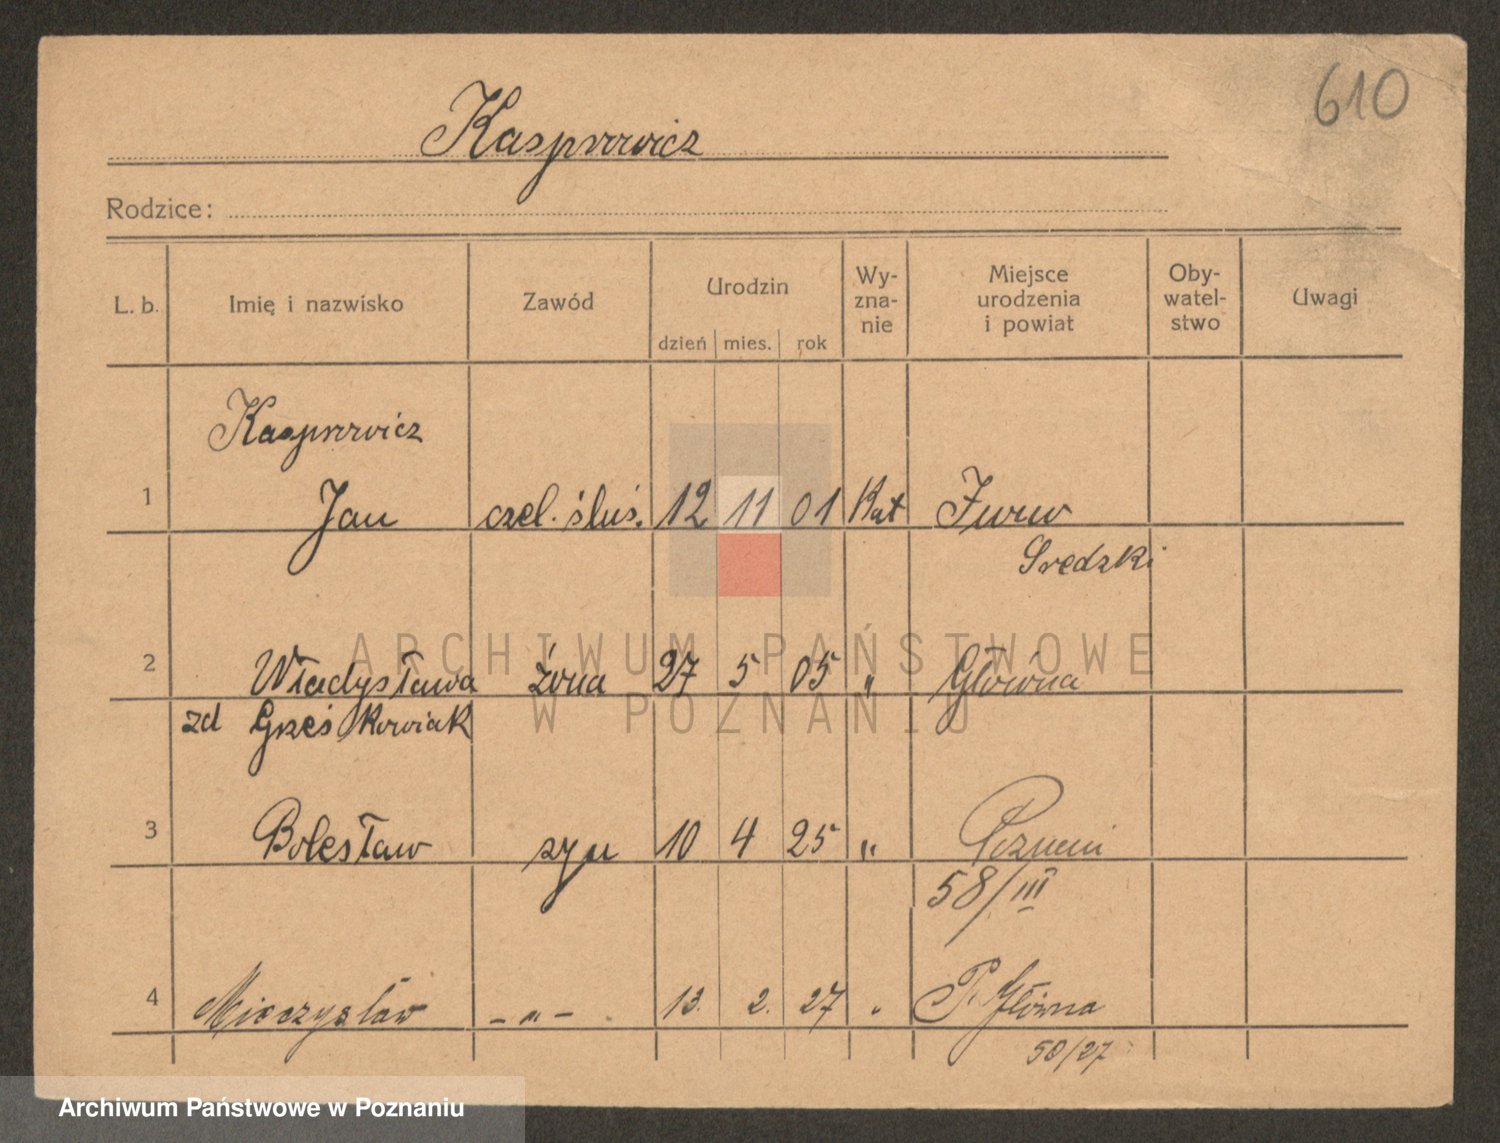 610
Kasprowicz
Rodzice:
L. b. Imię i nazwisko Zawód Urodzin dzień mies. rok Wy-zna-nie Miejsce urodzenia i powiat Oby-watel-stwo Uwagi
Kasprowicz
1 Jan czel. śluś. 12 11 01 Kat
Sredzki
2 Władysława żona 27 5 05 „ Główna
zd Grześkowiak
3 Bolesław syn 10 4 25 „ Poznań
58/III
4 Mieczysław -„- 13. 2. 27 „ P. Główna
50/27
ARCHIWUM PAŃSTWOWE
W POZNANIU
Archiwum Państwowe w Poznaniu